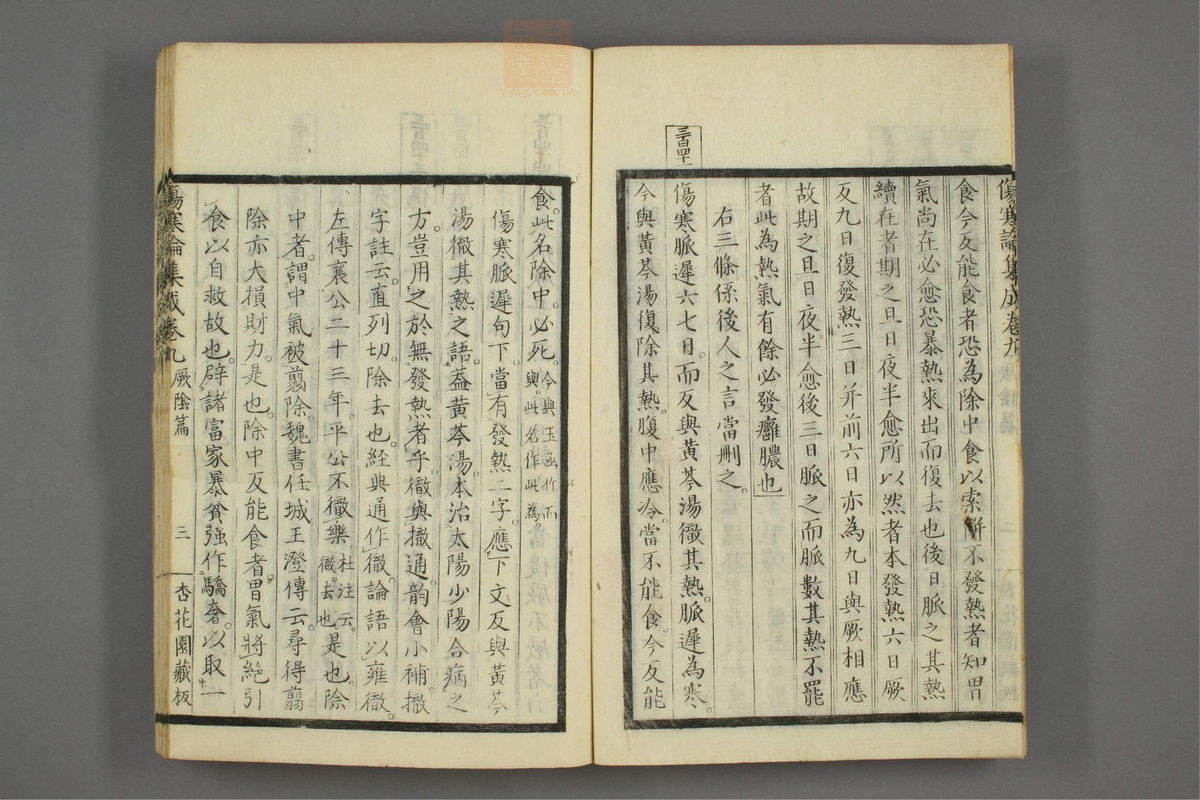 傷寒論集成卷九
食今反能食者恐為除中食以索餅不發熱者知胃
氣尚在必愈恐暴熱來出而復去也後日脈之其熱
續在者期之旦日夜半愈所以然者本發熱六日厥
反九日復發熱三日并前六日亦為九日與厥相應
故期之旦日夜半愈後三日脈之而脈數其熱不罷
者此為熱氣有餘必發癰膿也
右三條係後人之言當刪之。
三百四十
傷寒脈遲六七日。而反與黃芩湯徹其熱。脈遲為寒。
今與黃芩湯復除其熱。腹中應冷。當不能食。今反能
食。此名除中。必死。今與玉函作而與。此名作此為。
傷寒脈遲句下。當有發熱二字。應下文反與黃芩
湯徹其熱之語。蓋黃芩湯。本治太陽少陽合病之
方。豈用之於無發熱者乎。徹與撤通。韵會小補。撤
字註云。直列切。除去也。經典通作徹。論語以雍徹。
左傳襄公二十三年。平公不徹樂。杜注云。徹。去也。是也。除
中者。謂中氣被翦除。魏書任城王澄傳云。尋得翦
除。亦大損財力。是也。除中反能食者。胃氣將絕。引
食以自救故也。辟諸富家暴貧。强作驕奢。以取一
傷寒論集成卷九
厥陰篇
三
杏花園藏板